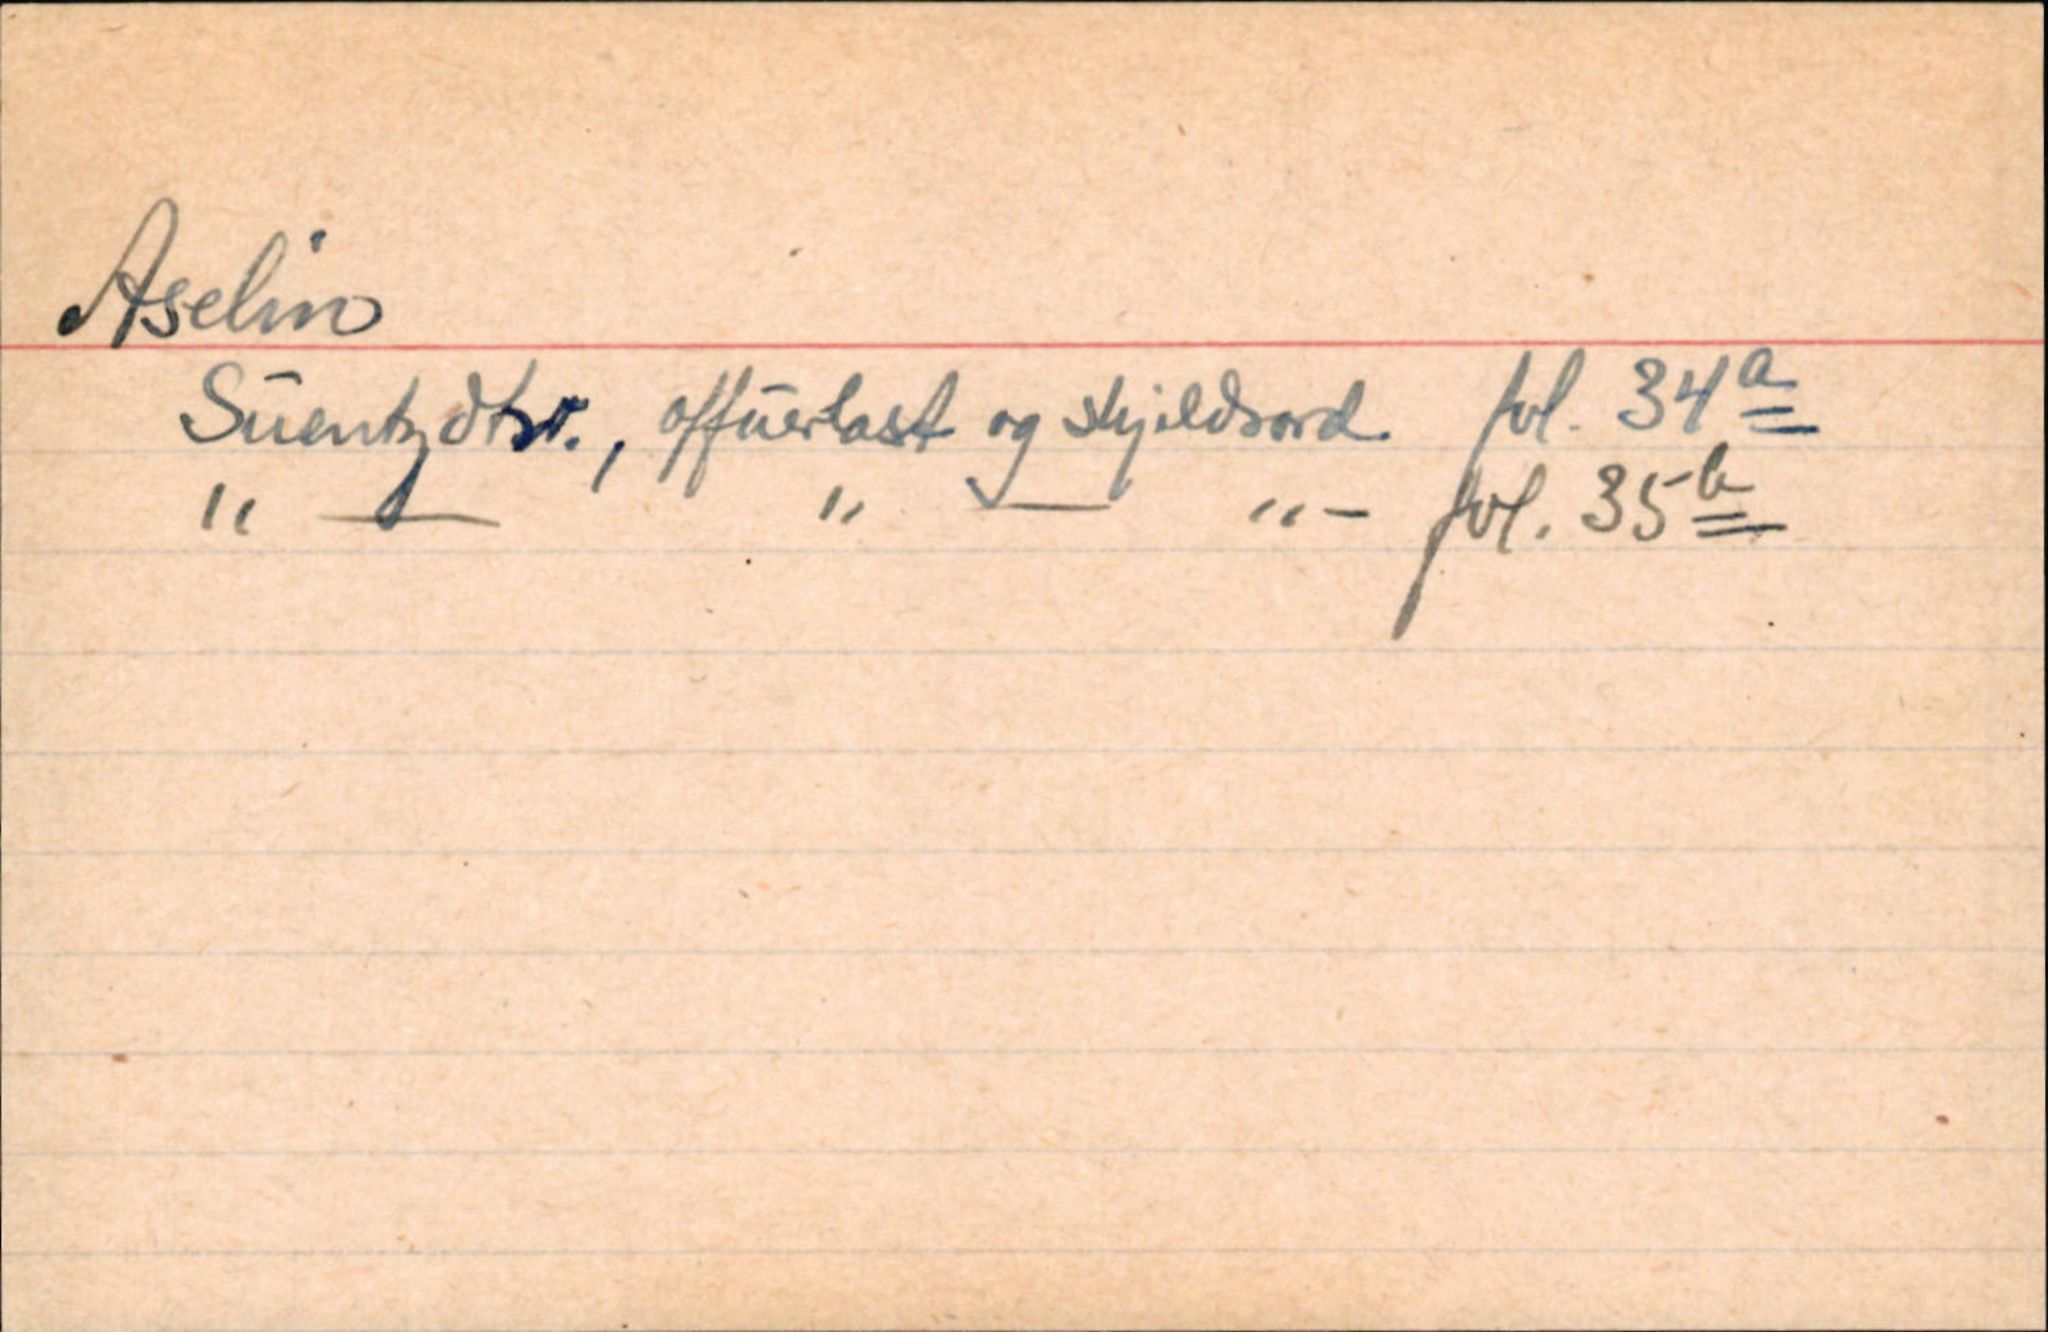 Aselin
Suentzdtr., offuerlast og skjeldsord. fol. 34a
" — " — " — fol. 35b